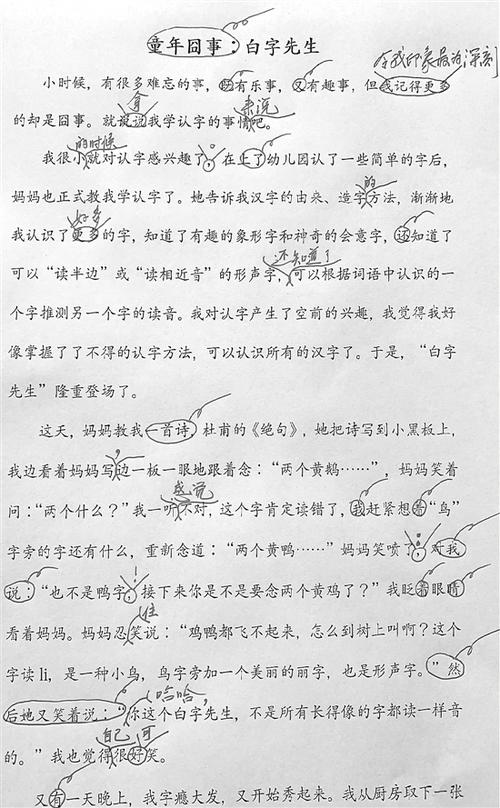 童年囧事：白字先生
令我印象最为深刻
小时候，有很多难忘的事，既有乐事，又有趣事，但我记得更多
拿 来说
的却是囧事。就说说我学认字的事情吧。
的时候
我很小就对认字感兴趣了。在上了幼儿园认了一些简单的字后，
的
妈妈也正式教我学认字了。她告诉我汉字的由来、造字方法，渐渐地
好多
我认识了更多的字，知道了有趣的象形字和神奇的会意字，还知道了
还知道了
可以“读半边”或“读相近音”的形声字，可以根据词语中认识的一
个字推测另一个字的读音。我对认字产生了空前的兴趣，我觉得我好
像掌握了了不得的认字方法，可以认识所有的汉字了。于是，“白字
先生”隆重登场了。
这天，妈妈教我一首诗，杜甫的《绝句》，她把诗写到小黑板上，
，
我边看着妈妈写边一板一眼地跟着念：“两个黄鹅……”，妈妈笑着
感觉
问：“两个什么？”我一听不对，这个字肯定读错了，我赶紧想着“鸟”
字旁的字还有什么，重新念道：“两个黄鸭……”妈妈笑喷了：对我
！
说：“也不是鸭字，接下来你是不是要念两个黄鸡了？”我眨着眼睛
住
看着妈妈。妈妈忍笑说：“鸡鸭都飞不起来，怎么到树上叫啊？这个
字读 li，是一种小鸟，鸟字旁加一个美丽的丽字，也是形声字。”然
哈哈，
后她又笑着说：“你这个白字先生，不是所有长得像的字都读一样音
自己 可
的。”我也觉得很好笑。
又有一天晚上，我字瘾大发，又开始秀起来。我从厨房取下一张